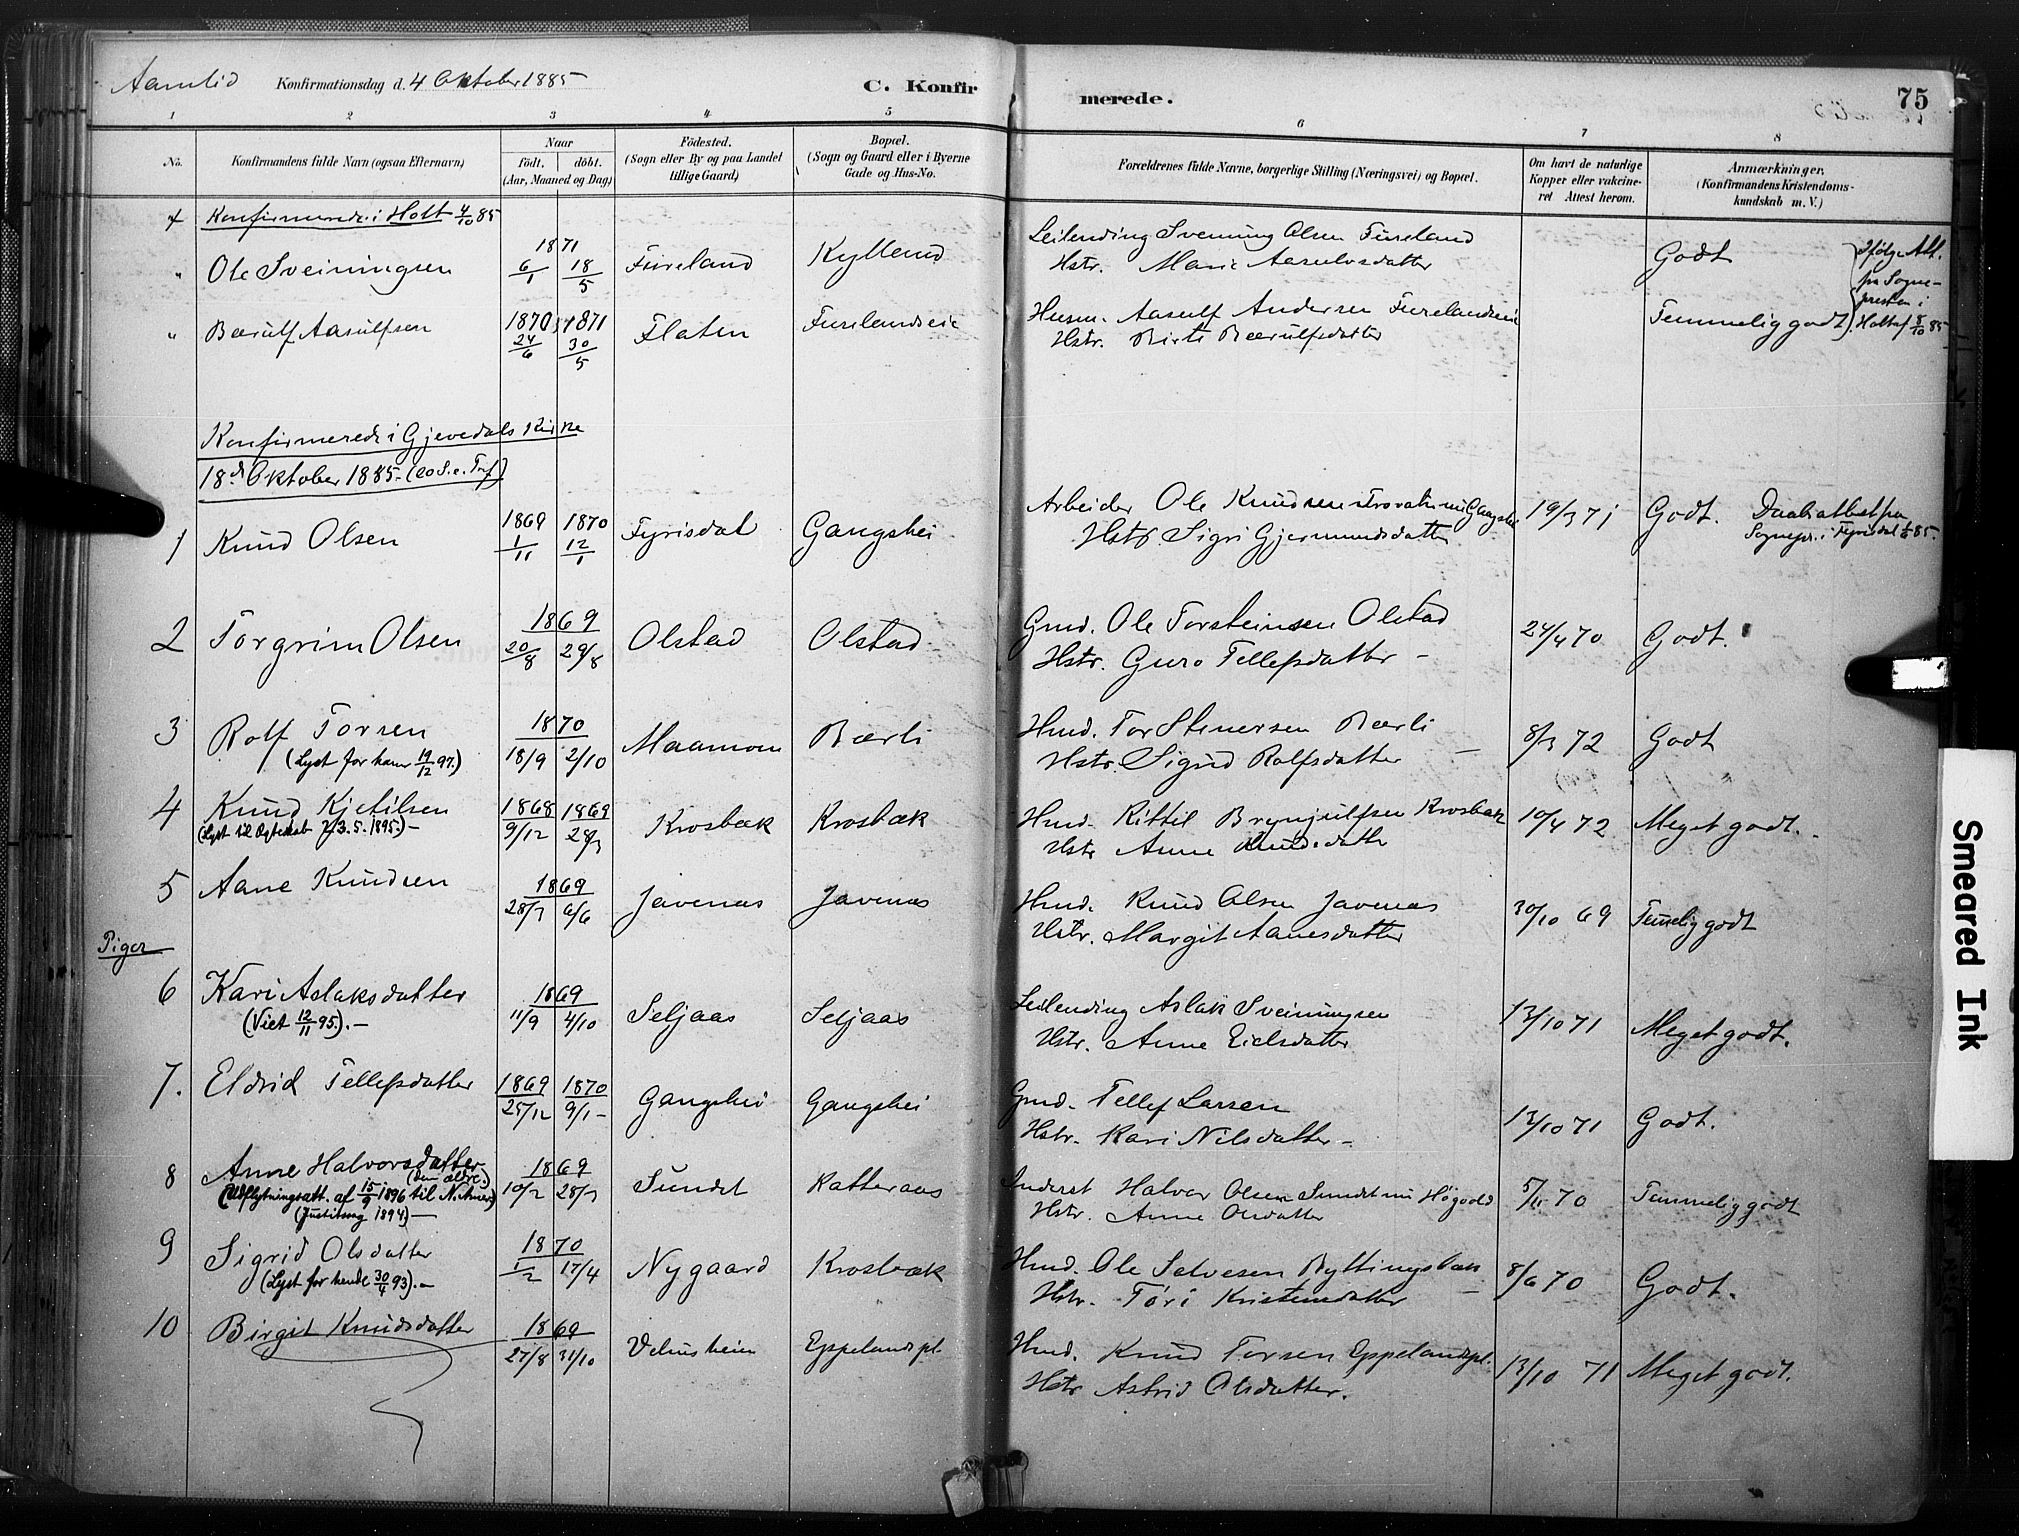 Aamlid Konfirmationsdag d. 4 Oktober 1885 C. Konfirmerede. 75
1 2 3 4 5 6 7 8
No. Konfirmandens fulde Navn (ogsaa Efternavn) Naar födt. döbt. (Aar, Maaned og Dag) Födested. (Sogn eller By og paa Landet tillige Gaard) Bopæl. (Sogn og Gaard eller i Byerne Gade og Hus-No. Forældrenes fulde Navne, borgerlige Stilling (Næringsvei) og Bopæl. Om havt de naturlige Kopper eller vakcineret Attest herom. Anmærkninger. (Konfirmandens Kristendomskundskab m. V.)
Konfirmerede i Holt 4/10 85
" Ole Sveiningsen 1871 6/1 18/5 Fureland Kyllend Leilending Svenning Olsen Fureland Godt Ifølge Att.
Hstr. Marie Aasulvsdatter fra Sogne-
presten i
" Bærulf Aasulfsen 1870 24/6 1871 30/5 Flaten Furelandseie Husm. Aasulf Andersen Furelandseie Temmelig godt Holt af 8/10 85
Hstr. Birte Bærulfsdatter
Konfirmerede i Gjevedals Kirke
18de Oktober 1885 - (20 S. e. Tref)
1 Knud Olsen 1869 1/11 1870 12/1 Fyrisdal Gangshei Arbeider Ole Knudsen 19/3 71 Godt. Daabsattest fra
Hstr. Sigri Gjermundsdatter Sognepr. i Fyrisdal 85.
2 Torgrim Olsen 1869 20/8 29/8 Olstad Olstad Gmd. Ole Torsteinsen Olstad 24/4 70 Godt.
Hstr. Guro Tellefsdatter -
3 Rolf Torsen 1870 18/9 2/10 Maamoen Bærli Hmd. Tor Stenersen Bærli 8/3 72 Godt
(Lyst for ham 19/12 97.) Hstr. Sigrid Rolfsdatter -
4 Knud Kjetilsen 1868 9/12 1869 28/3 Krosbæk Krosbæk Hmd. Kittil Brynjulfsen Krosbæk 10/4 72 Meget godt.
(Lyst til Ægteskab 3.5.1895.) - Hstr Anne Knudsdatter
5 Aane Knudsen 1869 28/3 6/6 Javenas Javenas Hmd. Knud Olsen Javenas 30/10 69 Temelig godt
Hstr. Margit Aanesdatter
Piger
6 Kari Aslaksdatter 1869 11/9 4/10 Seljaas Seljaas Leilending Aslak Sveinungsen 13/10 71 Meget godt.
(Viet 12/11 95). - Hstr. Anne Eielsdatter
7. Eldrid Tellefsdatter 1869 25/12 1870 9/1 - Gangshei Gangshei Gmd. Tellef Larsen 13/10 71 Godt.
Hstr. Kari Nilsdatter -
8 Anne Halvorsdatter (den ældre.) 1869 10/2 28/3 Sundet Katteraas Inderst Halvor Olsen Sundet nu Høgvold 5/11 70 Temmelig godt
(Udflytningsatt. af 15/9 1896 til N. Amer.) Hstr. Anne Olsdatter
(Justitsmg 1894) -
9 Sigrid Olsdatter 1870 1/2 17/4 Nygaard Krosbæk Hmd. Ole Salvesen Byttingsbæk 8/6 70 Godt.
(Lyst for hende 30/4 93). - Hstr. Tøri Kristensdatter -
10 Birgit Knudsdatter 1869 27/8 31/10 Velusheien Eppelandspl. Hmd. Knud Torsen Eppelandspl. 13/10 71 Meget godt.
Hstr Astrid Olsdatter.
Smeared Ink